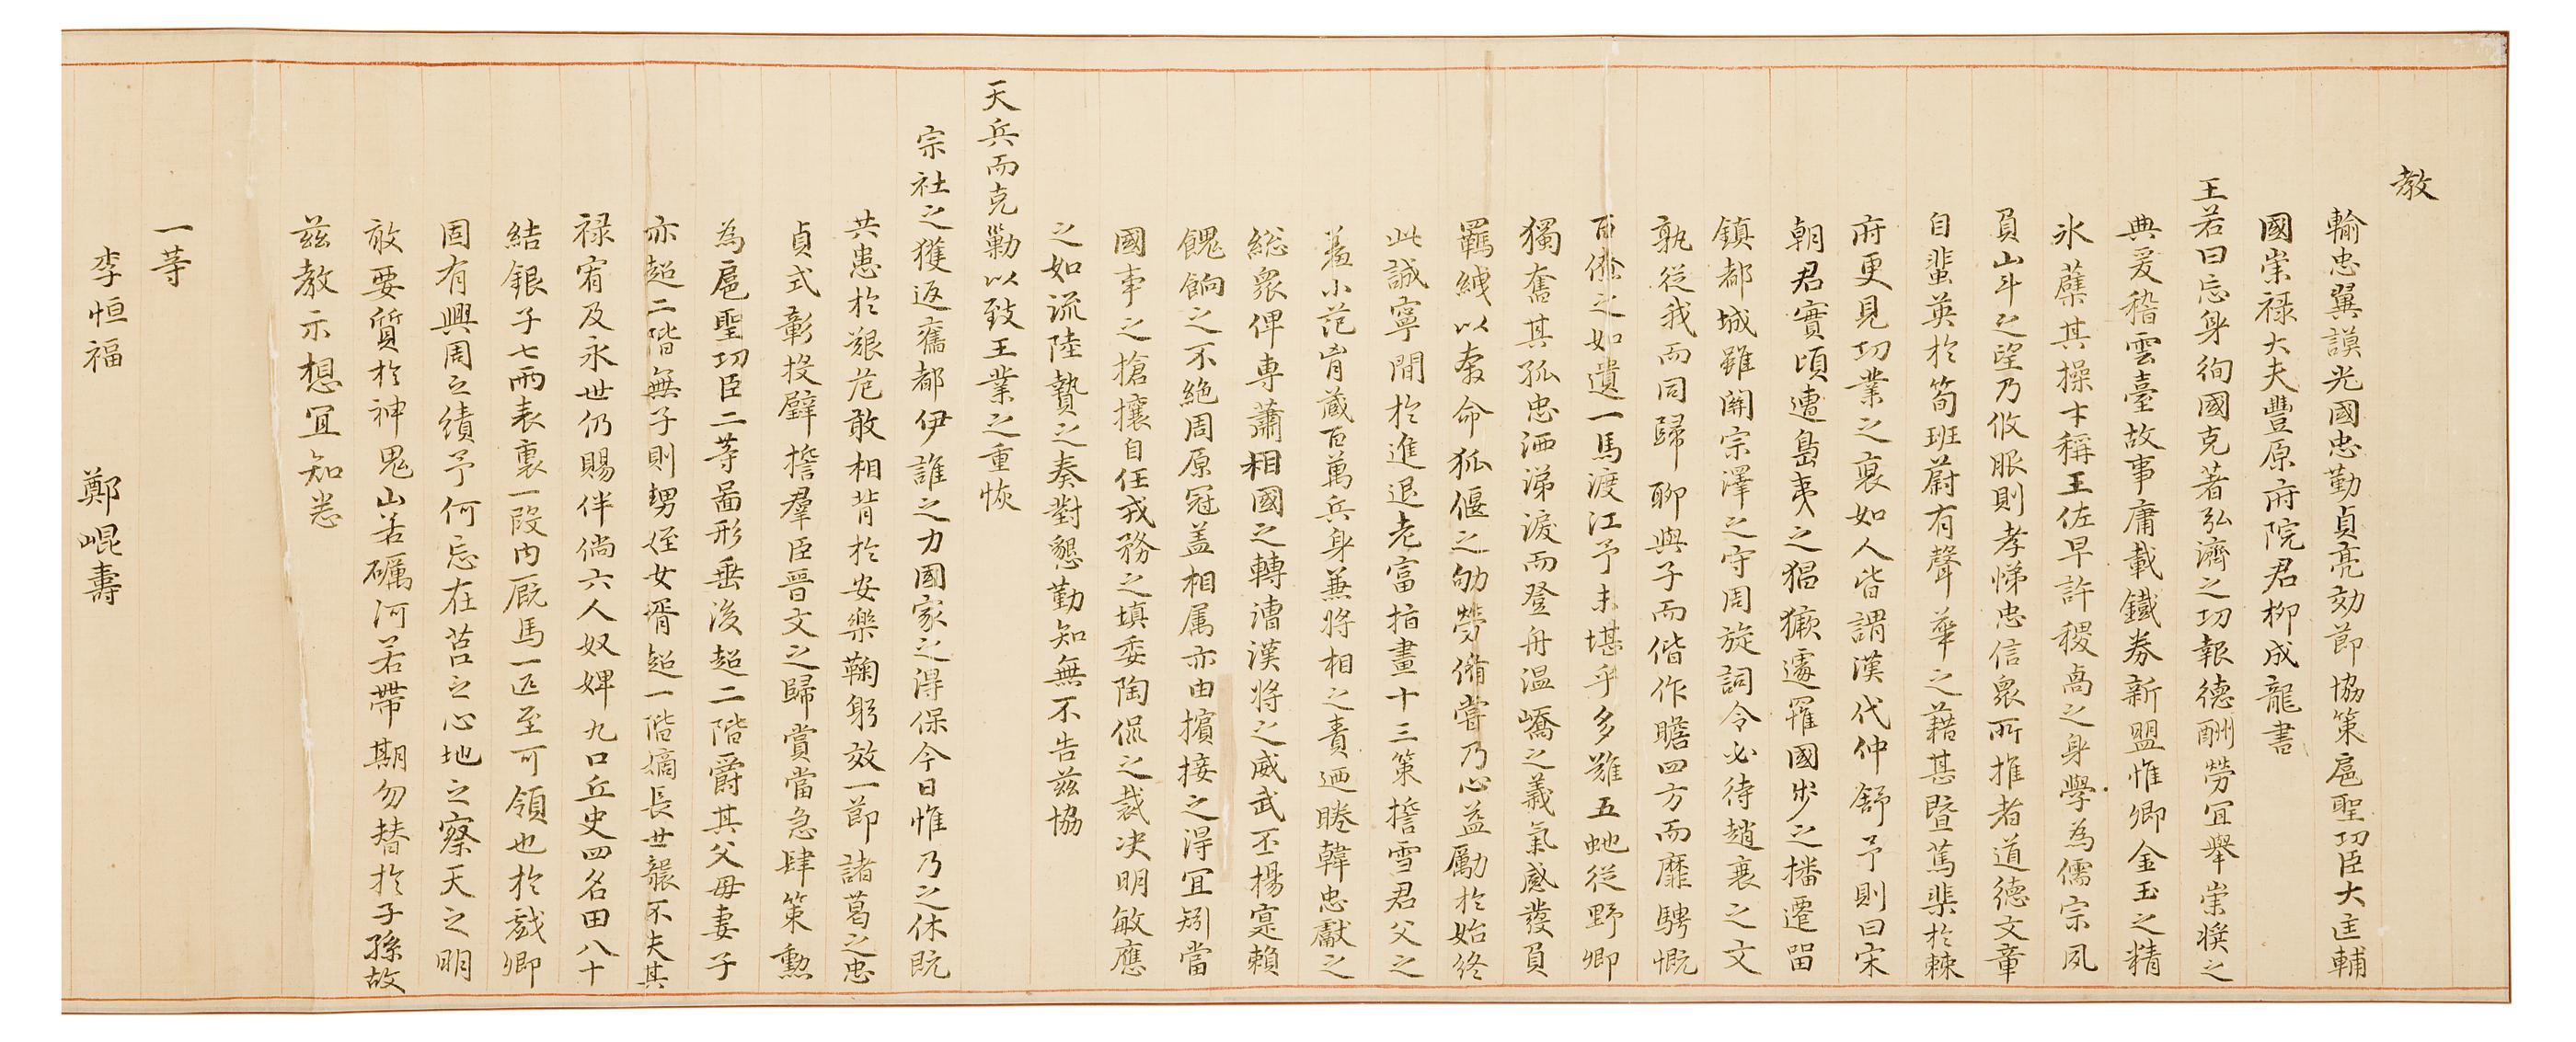 教
輸忠翼謨光國忠勤貞亮効節協策扈聖功臣大匡輔
國崇祿大夫豐原府院君柳成龍書
王若曰忘身徇國克著弘濟之功報德酬勞宜舉崇獎之
典爰稽雲臺故事庸載鐵券新盟惟卿金玉之精
氷蘗其操卞稱王佐早許稷卨之身學為儒宗夙
負山斗之望乃攸服則孝悌忠信衆所推者道德文章
自蜚英於筍班蔚有聲華之藉甚曁篤棐於棘
府更見功業之裒如人皆謂漢代仲舒予則曰宋
朝君實頃遭島夷之猖獗遽罹國步之播遷留
鎮都城雖關宗澤之守周旋詞令必待趙衰之文
孰從我而同歸聊與子而偕作瞻四方而靡騁慨
百僚之如遺一馬渡江予未堪乎多難五虵從野卿
獨奮其孤忠洒涕淚而登舟温嶠之義氣感發負
羈絏以奔命狐偃之劬勞備嘗乃心益勵於始終
此誠寧間於進退老富指畫十三策擔雪君父之
羞小范胷藏百萬兵身兼將相之責廼睠韓忠獻之
総衆俾專蕭相國之轉漕漢將之威武丕揚寔賴
餽餉之不絕周原冠盖相属亦由擯接之得宜矧當
國事之搶攘自任戎務之填委陶侃之裁决明敏應
之如流陸贄之奏對懇勤知無不告兹協
天兵而克勦以致王業之重恢
宗社之獲返舊都伊誰之力國家之得保今日惟乃之休旣
共患於艱危敢相背於安樂鞠躬效一節諸葛之忠
貞式彰投璧擔羣臣晉文之歸賞當急肆策勳
為扈聖功臣二等圖形垂後超二階爵其父母妻子
亦超二階無子則甥姪女壻超一階嫡長世襲不失其
祿宥及永世仍賜伴倘六人奴婢九口丘史四名田八十
結銀子七兩表裏一段内厩馬一匹至可領也於戲卿
固有興周之績予何忘在莒之心地之察天之明
敢要質於神鬼山若礪河若帶期勿替於子孫故
兹教示想宜知悉
一等
李恒福　鄭崐壽